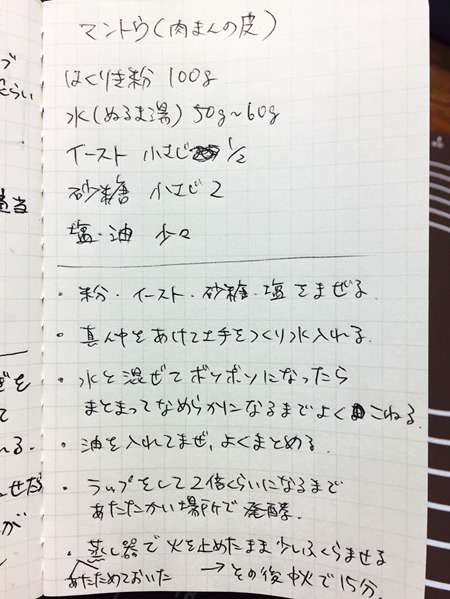 マントウ(肉まんの皮)
はくりき粉 100g
水(ぬるま湯) 50g~60g
イースト 小さじ 1/2
砂糖 小さじ 2
塩・油 少々
・粉・イースト・砂糖・塩をまぜる
・真ん中をあけて土手をつくり水入れる。
・水と混ぜてボソボソになったら
まとまってなめらかになるまでよくこねる。
・油を入れてまぜ、よくまとめる。
・ラップをして2倍くらいになるまで
あたたかい場所で発酵。
・蒸し器で火を止めたまま少しふくらませる
あたためておいた →その後中火で15分。